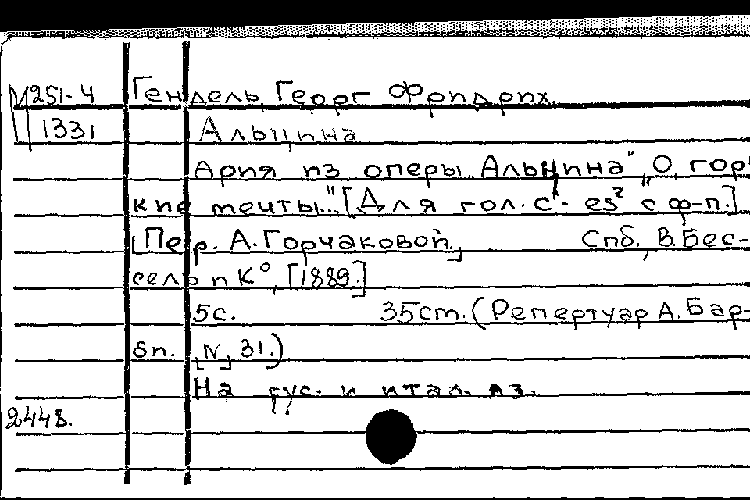 М251-4 Гендель, Георг Фридрих
1331 Альцина
Ария из оперы „Альцина" „О, горь-
кие мечты..." [Для гол. c¹- es² с ф-п.]
[Пер. А. Горчаковой.] Спб., В. Бес-
сель и К°, [1889.]
5с. 35cm. (Репертуар А. Бар-
би. [N] 31.)
На рус. и итал. яз.
2448.